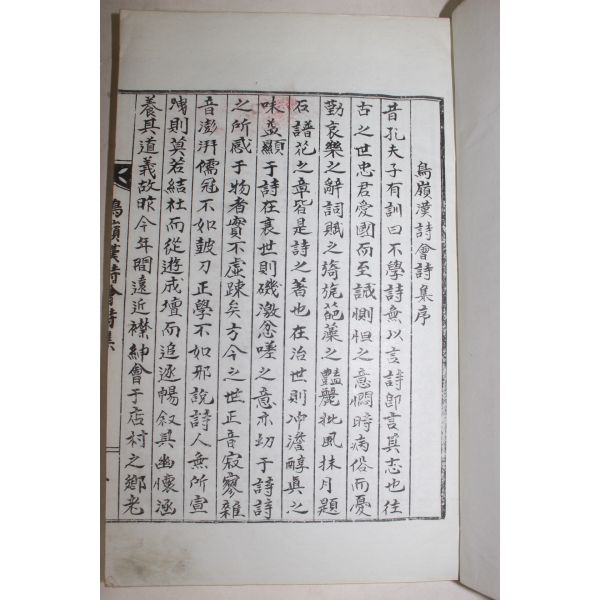 鳥嶺漢詩會詩集序
昔孔夫子有訓曰不學詩無以言詩卽言其志也往
古之世忠君愛國而至誠惻怛之意憫時病俗而憂
勤哀樂之辭詞賦之旖旎葩藻之豔麗批風抹月題
石譜花之章皆是詩之著也在治世則冲澹醇眞之
味益顯于詩在衰世則磯激忿嗟之意亦切于詩詩
之所感于物者實不虛疎矣方今之世正音寂寥雜
音澎湃儒冠不如皷刀正學不如邪說詩人無所宣
洩則莫若結社而從遊成壇而追逐暢叙其幽懷涵
養其道義故昨今年間遠近襟紳會于店村之鄕老
鳥嶺漢詩會詩集